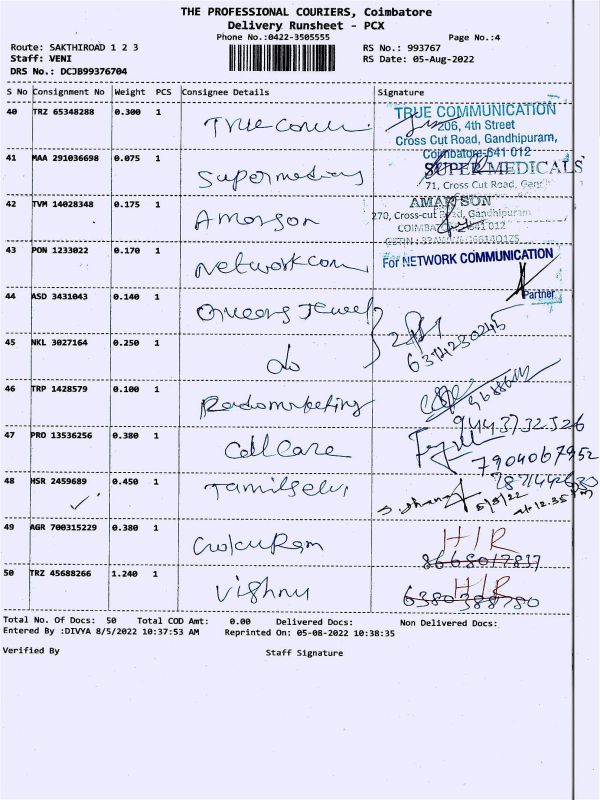 THE PROFESSIONAL COURIERS, Coimbatore
Delivery Runsheet - PCX
Phone No.:0422-3505555
Page No.:4
Route: SAKTHIROAD 1 2 3
RS No.: 993767
Staff: VENI
RS Date: 05-Aug-2022
DRS No.: DCJB99376704
S No Consignment No Weight PCS Consignee Details Signature
40 TRZ 65348288 0.300 1 True Comm
TRUE COMMUNICATION
206, 4th Street
Cross Cut Road, Gandhipuram,
Coimbatore-641 012
41 MAA 291036698 0.075 1 Supermedicals
SUPER MEDICALS
71, Cross Cut Road,
42 TVM 14028348 0.175 1 Amarson
AMARSON
270, Cross-cut Road, Gandhipuram
43 PON 1233022 0.170 1 Network com
For NETWORK COMMUNICATION
Partner
44 ASD 3431043 0.140 1 Queens Jewel
45 NKL 3027164 0.250 1 do
6374230245
46 TRP 1428579 0.100 1 Radomarketing
9443732526
47 PRO 13536256 0.380 1 Cell Care
7904067952
48 HSR 2459689 0.450 1 Tamilselvi
5/8/22
at 12.35 Pm
49 AGR 700315229 0.380 1 Gokulram
H/R
8668017837
50 TRZ 45688266 1.240 1 Vishnu
H/R
6380388780
Total No. Of Docs: 50 Total COD Amt: 0.00 Delivered Docs: Non Delivered Docs:
Entered By :DIVYA 8/5/2022 10:37:53 AM Reprinted On: 05-08-2022 10:38:35
Verified By Staff Signature